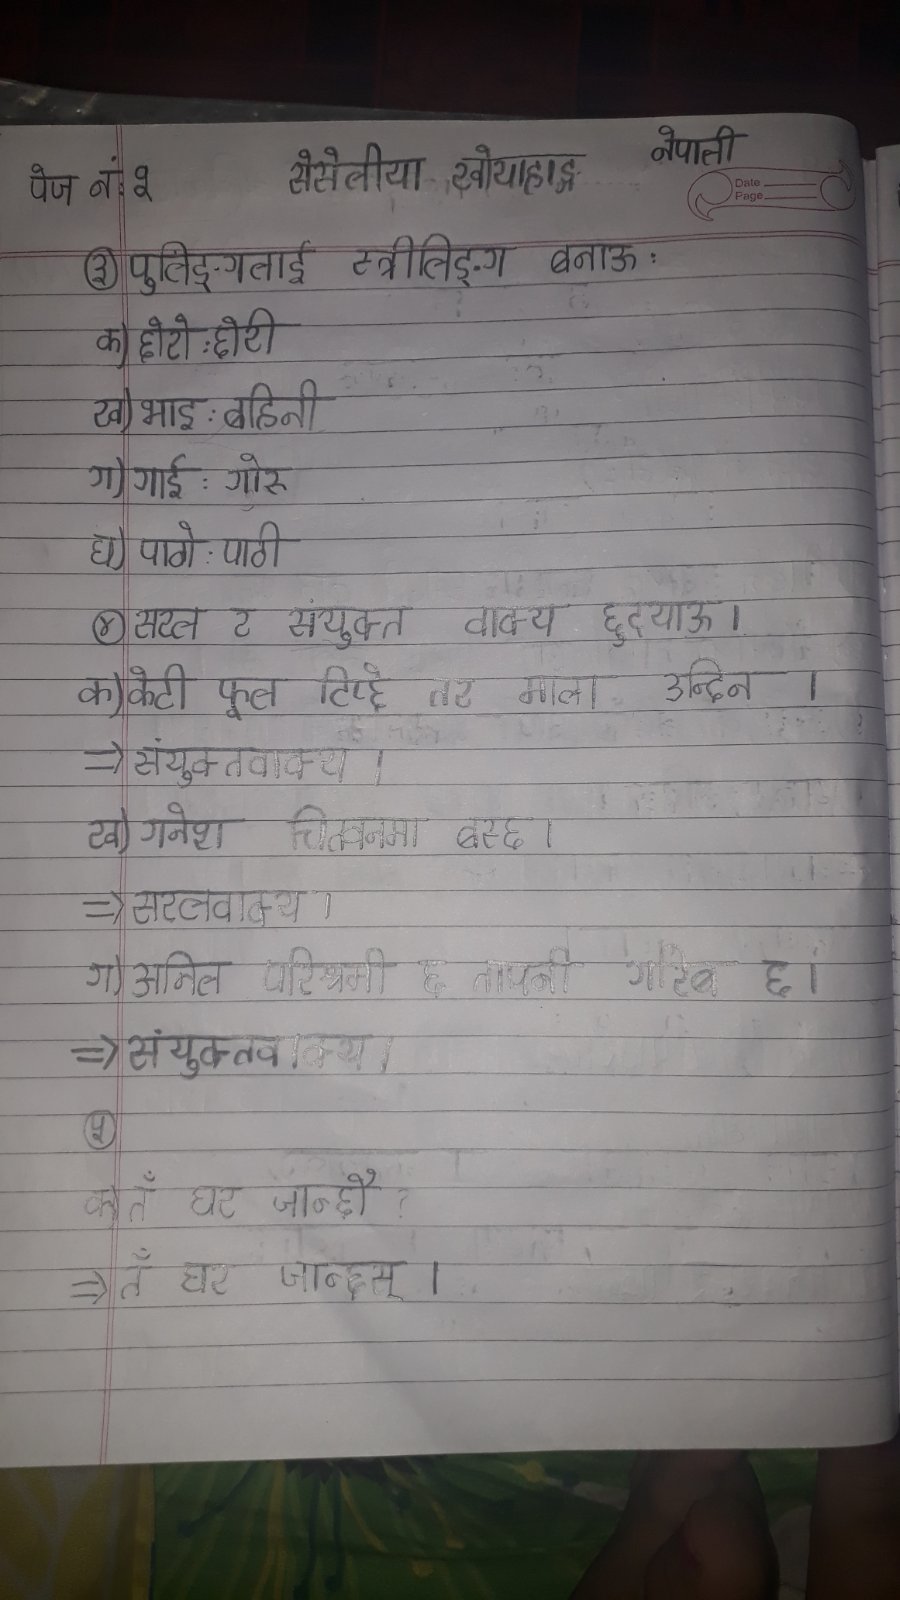 पेज नं. २ सेसेलीया खोयाहाङ्ग नेपाली
Date
Page
३ पुलिङ्गलाई स्त्रीलिङ्ग बनाऊ :
क) छोरो : छोरी
ख) भाइ : बहिनी
ग) गाई : गोरु
घ) पाठो : पाठी
४ सरल र संयुक्त वाक्य छुट्याऊ ।
क) केटी फूल टिप्छे तर माला उन्दिन ।
=> संयुक्तवाक्य ।
ख) गनेश चितवनमा बस्छ ।
=> सरलवाक्य ।
ग) अनिल परिश्रमी छ तापनी गरिब छ ।
=> संयुक्तवाक्य ।
५
क) तँ घर जान्छौ ?
=> तँ घर जान्छस् ।